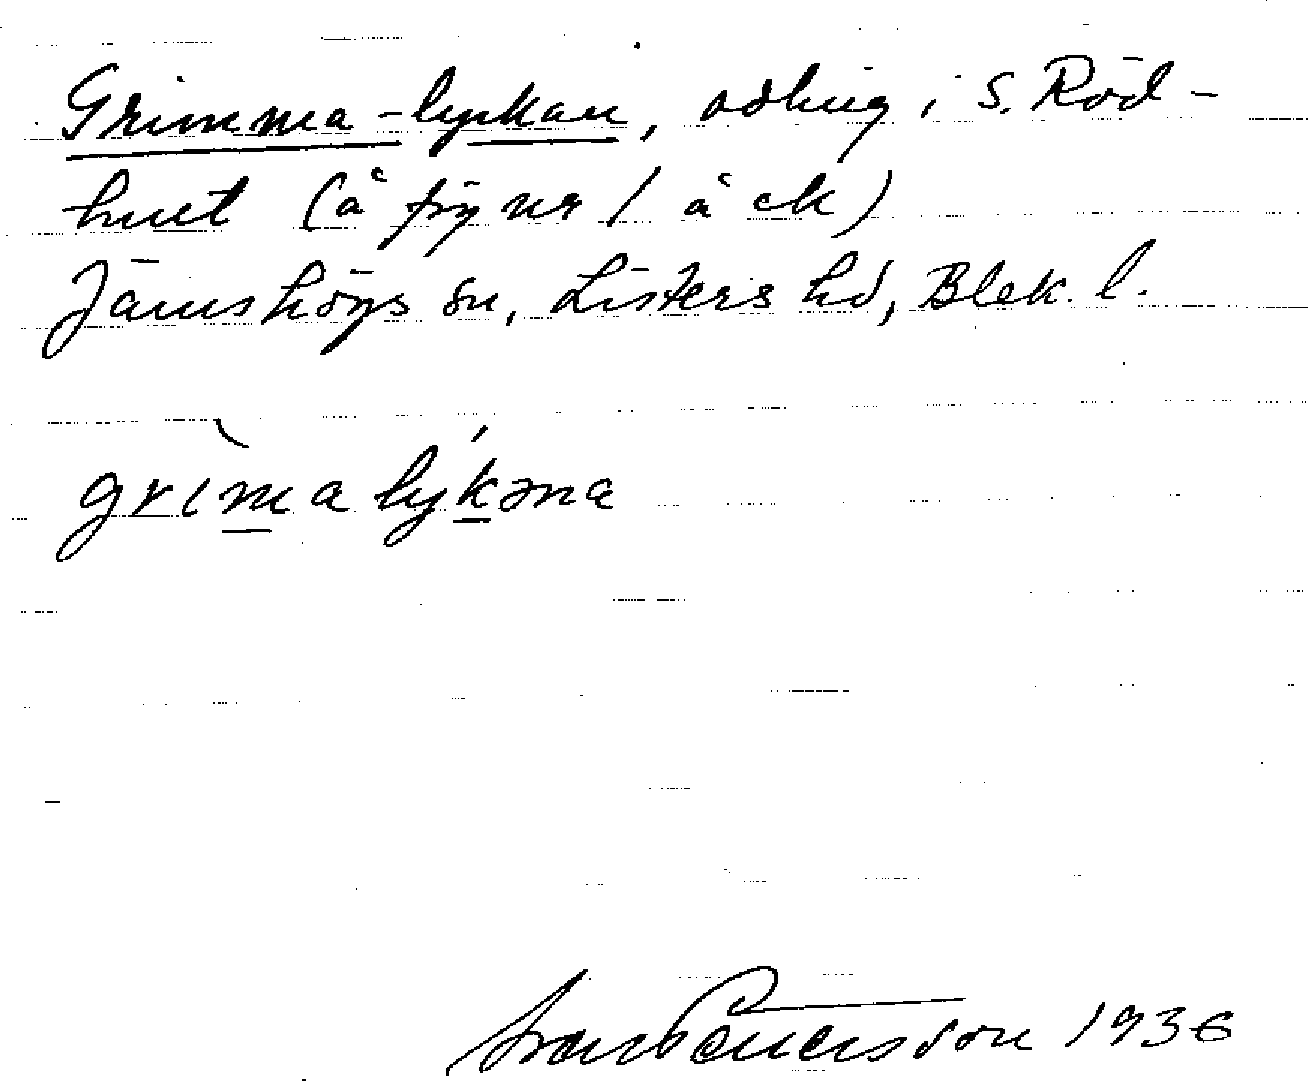 Grimma-lyckan, odling i S. Röd-
hult (å
Jämshögs sn, Listers hd, Blek. l.
grimalykəna
1936